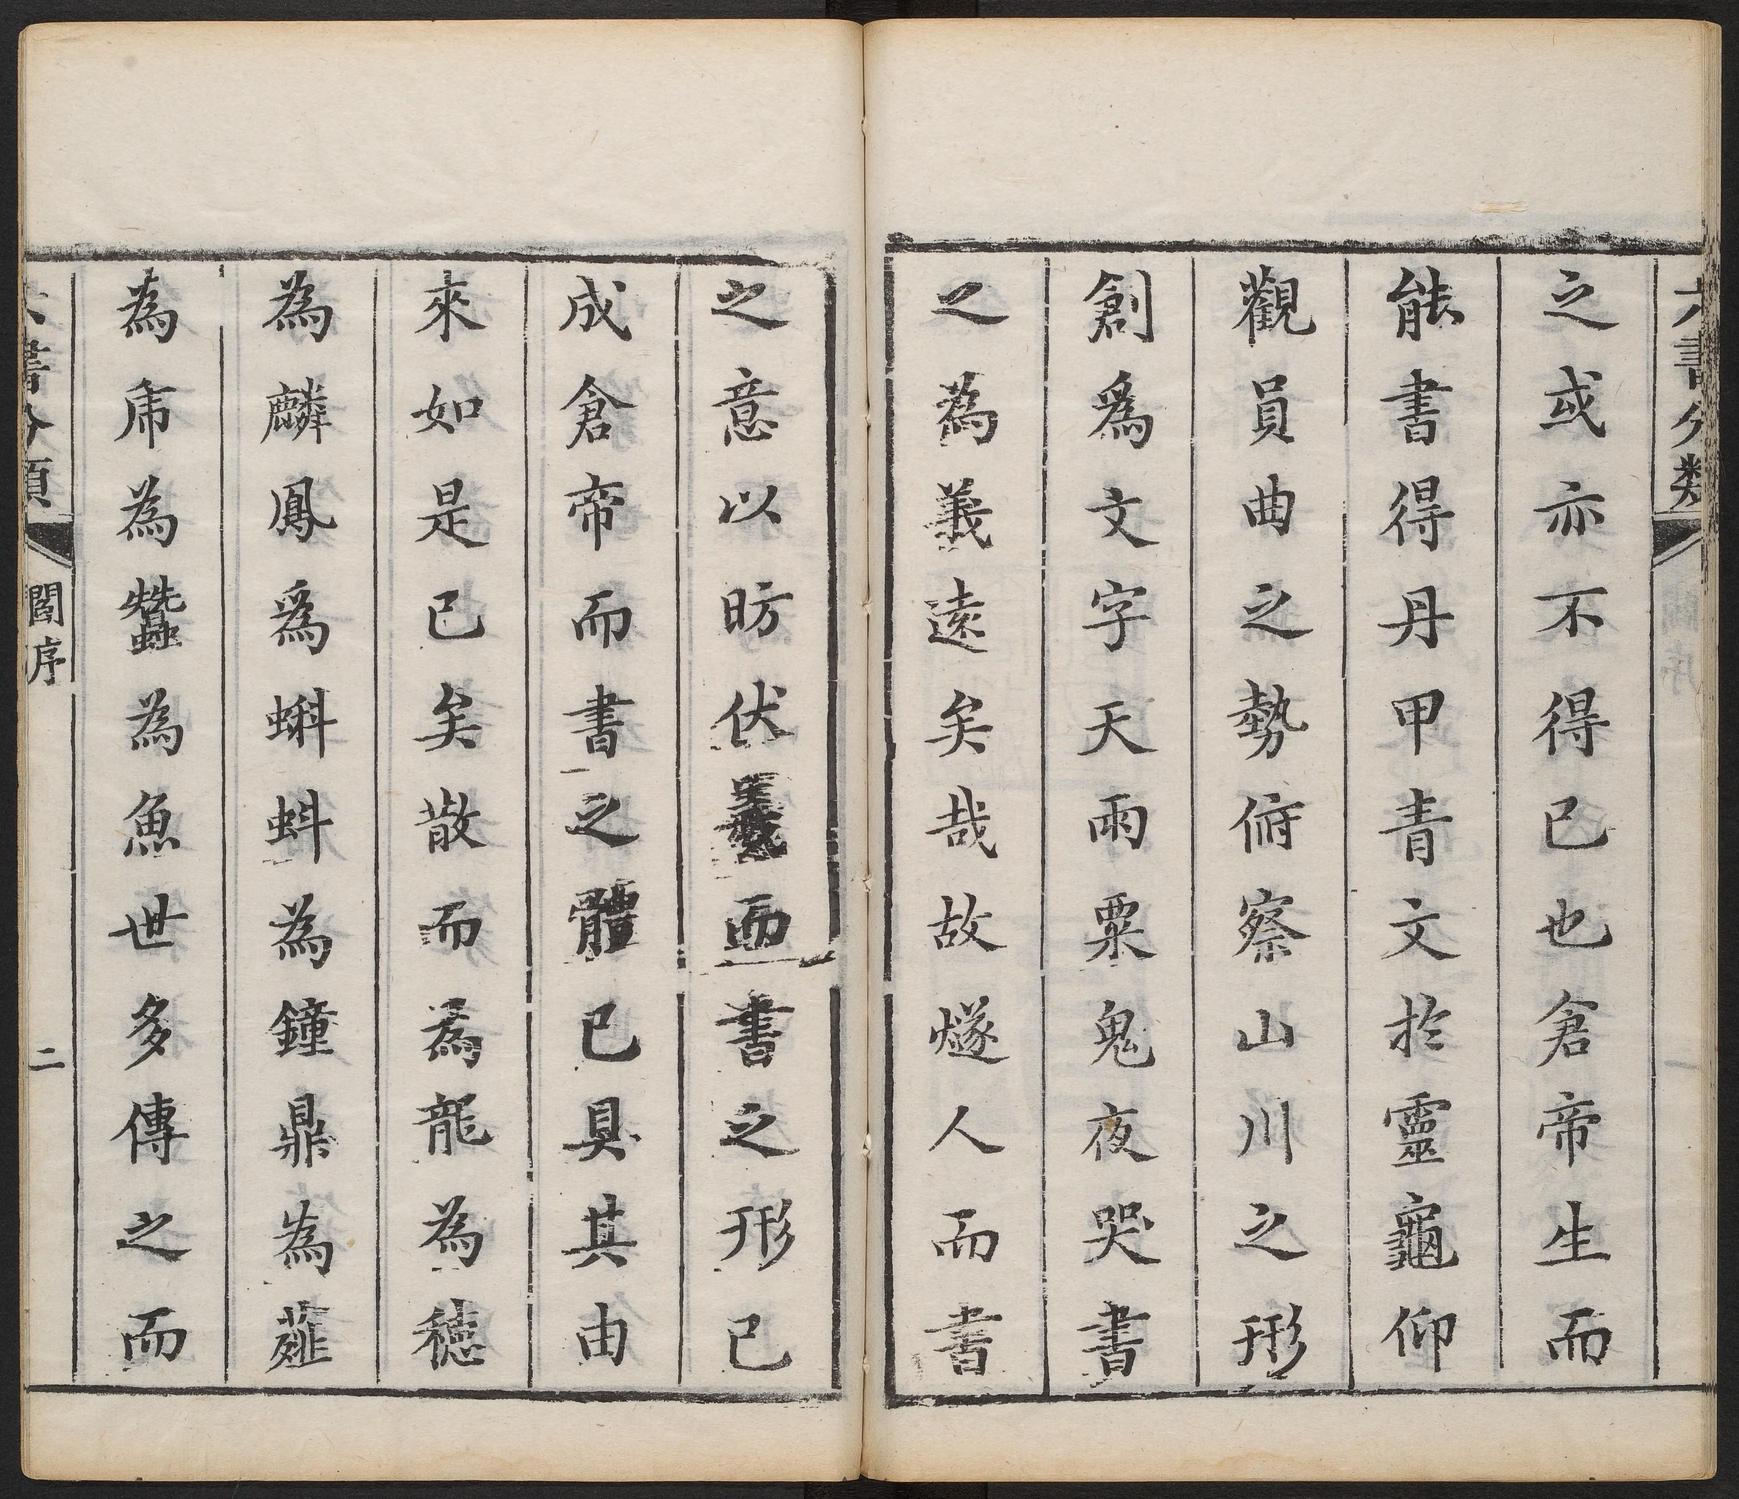 六書分類
之或亦不得已也倉帝生而
能書得丹甲青文於靈龜仰
觀員曲之勢俯察山川之形
創爲文字天雨粟鬼夜哭書
之為義遠矣哉故燧人而書
之意以昉伏羲而書之形已
成倉帝而書之體已具其由
來如是已矣散而為龍為穂
為麟鳳爲蝌蚪為鐘鼎為薤
為帍為蠶為魚世多傳之而
六書分類 閻序 二